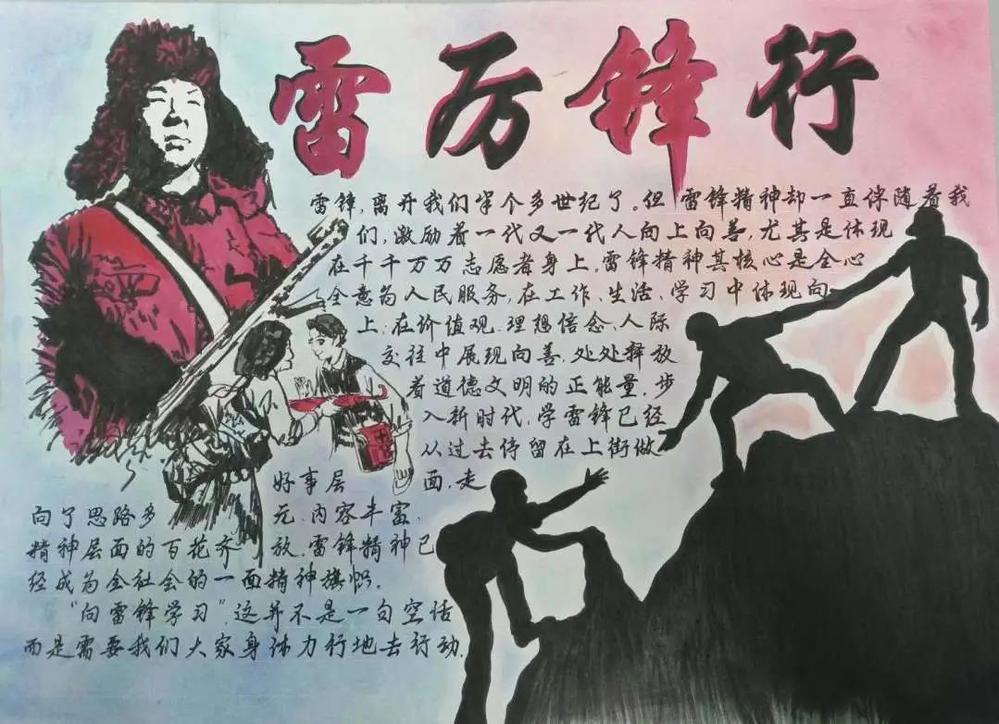 雷厉锋行
雷锋,离开我们半个多世纪了。但雷锋精神却一直伴随着我
们,激励着一代又一代人向上向善,尤其是体现
在千千万万志愿者身上,雷锋精神其核心是全心
全意为人民服务,在工作、生活、学习中体现向
上;在价值观、理想信念、人际
交往中展现向善,处处释放
着道德文明的正能量,步
入新时代,学雷锋已经
从过去停留在上街做
好事层面,走
向了思路多元、内容丰富、
精神层面的百花齐放,雷锋精神已
经成为全社会的一面精神旗帜。
"向雷锋学习",这并不是一句空话
而是需要我们大家身体力行地去行动.